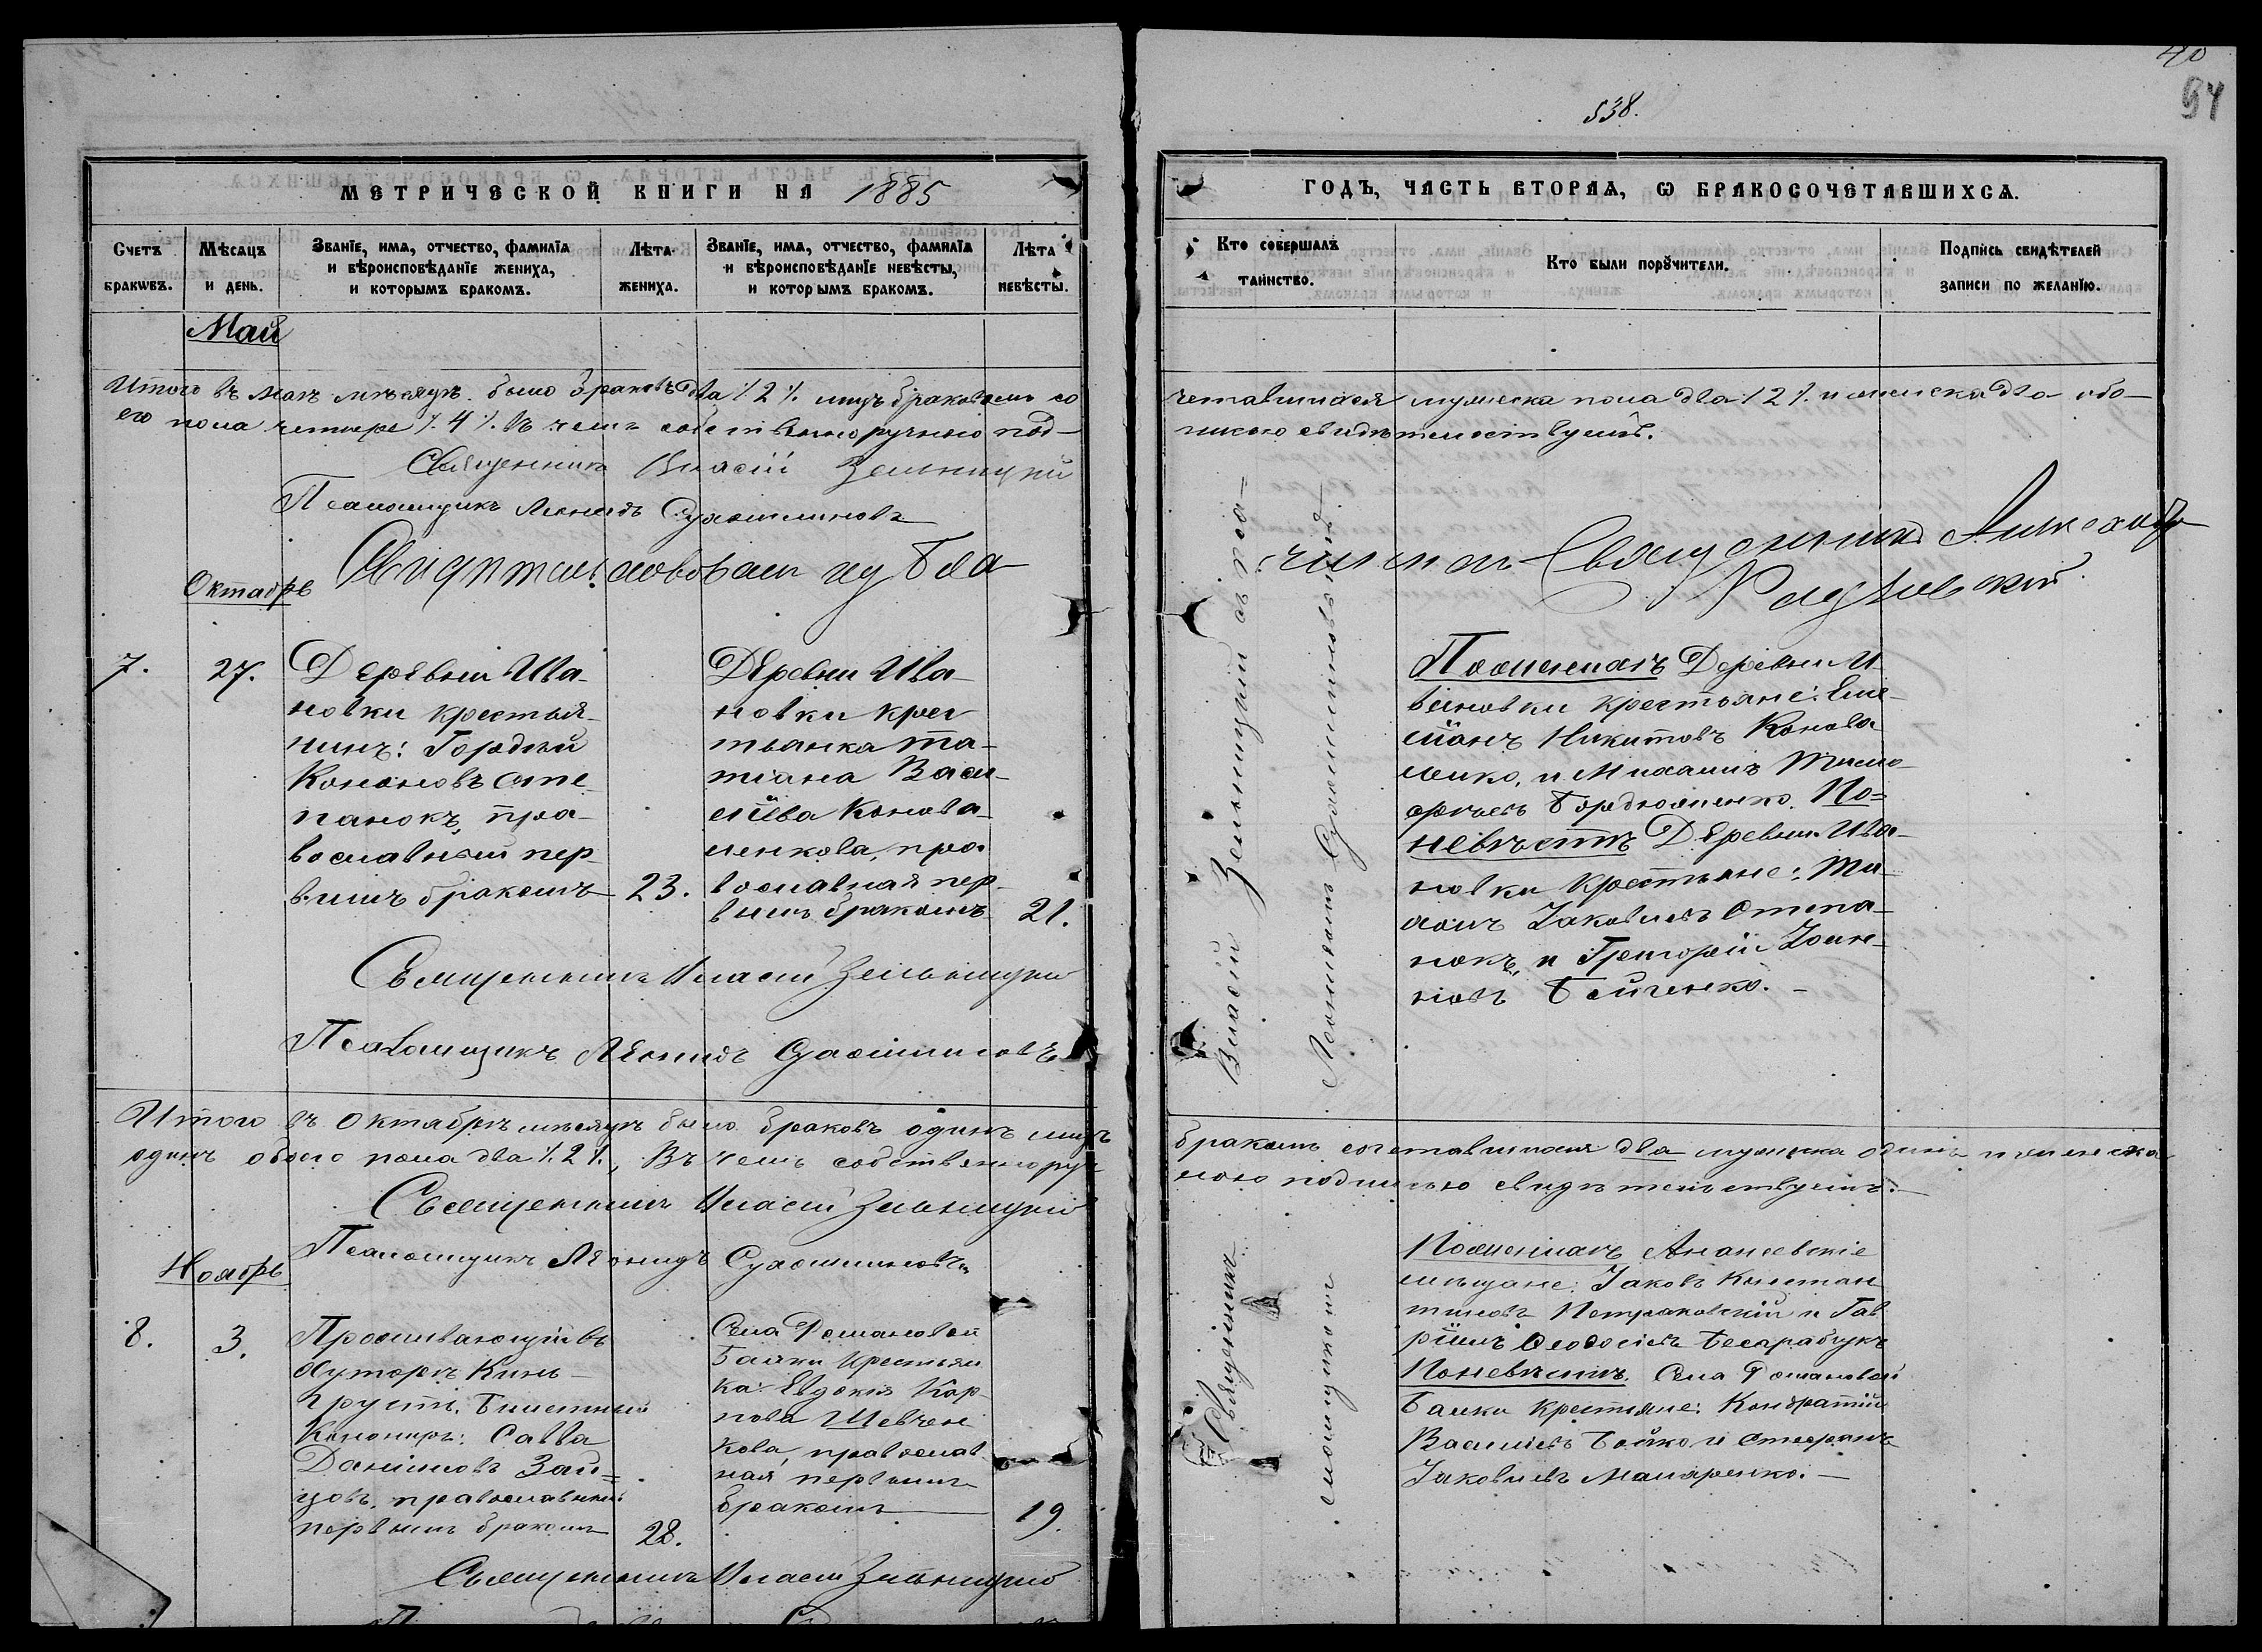 40
94
538.
МЕТРИЧЕСКОЙ КНИГИ НА 1885
ГОДЪ, ЧАСТЬ ВТОРАЯ, Ѡ БРАКОСОЧЕТАВШИХСЯ.
Счетъ браквъ.
Мѣсяцъ и день.
Званіе, имя, отчество, фамилія
и вѣроисповѣданіе жениха,
и которымъ бракомъ.
Лѣта жениха.
Званіе, имя, отчество, фамилія
и вѣроисповѣданіе невѣсты,
и которымъ бракомъ.
Лѣта невѣсты.
Кто совершалъ
таинство.
Кто были порꙋчители.
Подпись свидѣтелей
записи по желанію.
Май
Итого въ Маѣ мѣсяцѣ было браковъ два ⁒ 2 ⁒ лицъ бракомъ со
четавшихся мужеска пола два ⁒ 2 ⁒ и женска два обо-
его пола четыре ⁒ 4 ⁒. Въ чемъ собственноручною под-
писью свидѣтельствуемъ.
Священникъ Власій Зельницкій
Псаломщикъ Леонидъ Сухошиновъ
Свидѣтельствовалъ Священникъ
Октябрь
7.
27.
Деревни Ива-
новки крестья-
нинъ: Гордѣй
Кононовъ Сте-
панокъ, пра-
вославный пер-
вымъ бракомъ
23.
Деревни Ива-
новки крес
тьянка Та-
тіана Васи-
ліева Конова-
ленкова, пра
вославная пер-
вымъ бракомъ
21.
Власій Зельницкій съ пса-
ломщикомъ Леонидомъ
По женихѣ Деревни И-
вановки крестьяне: Еме-
ліанъ Никитовъ Конова
ленко, и Михаилъ Тимо-
фѣевъ По-
невѣстѣ Деревни Ива-
новки крестьяне:
Іаковлевъ Степа-
нокъ, и Григорій Іоан-
новъ Бойченко.-
Священникъ Власій Зельницкій
Псаломщикъ Леонидъ Сухошиновъ
Итого въ Октябрѣ мѣсяцѣ было браковъ одинъ лицъ
бракомъ сочетавшихся два мужеска одинъ и женска
одинъ обоего пола два ⁒ 2 ⁒, Въ чемъ собственноруч
ною подписью свидѣтельствуемъ.-
Священникъ Власій Зельницкій
Псаломщикъ Леонидъ Сухошиновъ
Ноябрь
8.
3.
Проживающій въ
Хуторѣ Кинь-
грустъ, Билетный
Колонистъ: Савва
Даніиловъ Зай-
цовъ, православный
первымъ бракомъ
28.
Села Романовой
Балки крестьян
ка: Евдокія Кар-
пова Шевчен
кова, православ
ная первымъ
бракомъ
19.
Священникъ
По женихѣ Ананьевскіе
мѣщане: Іаковъ Констан
тиновъ Петраковскій и Гав
ріилъ Ѳеодосіевъ Бесарабчукъ
По невѣстѣ. Села Романовой
Балки крестьяне: Кондратій
Василіевъ Бойко и Стефанъ
Іаковлевъ Макаренко.-
Священникъ Власій Зельницкій